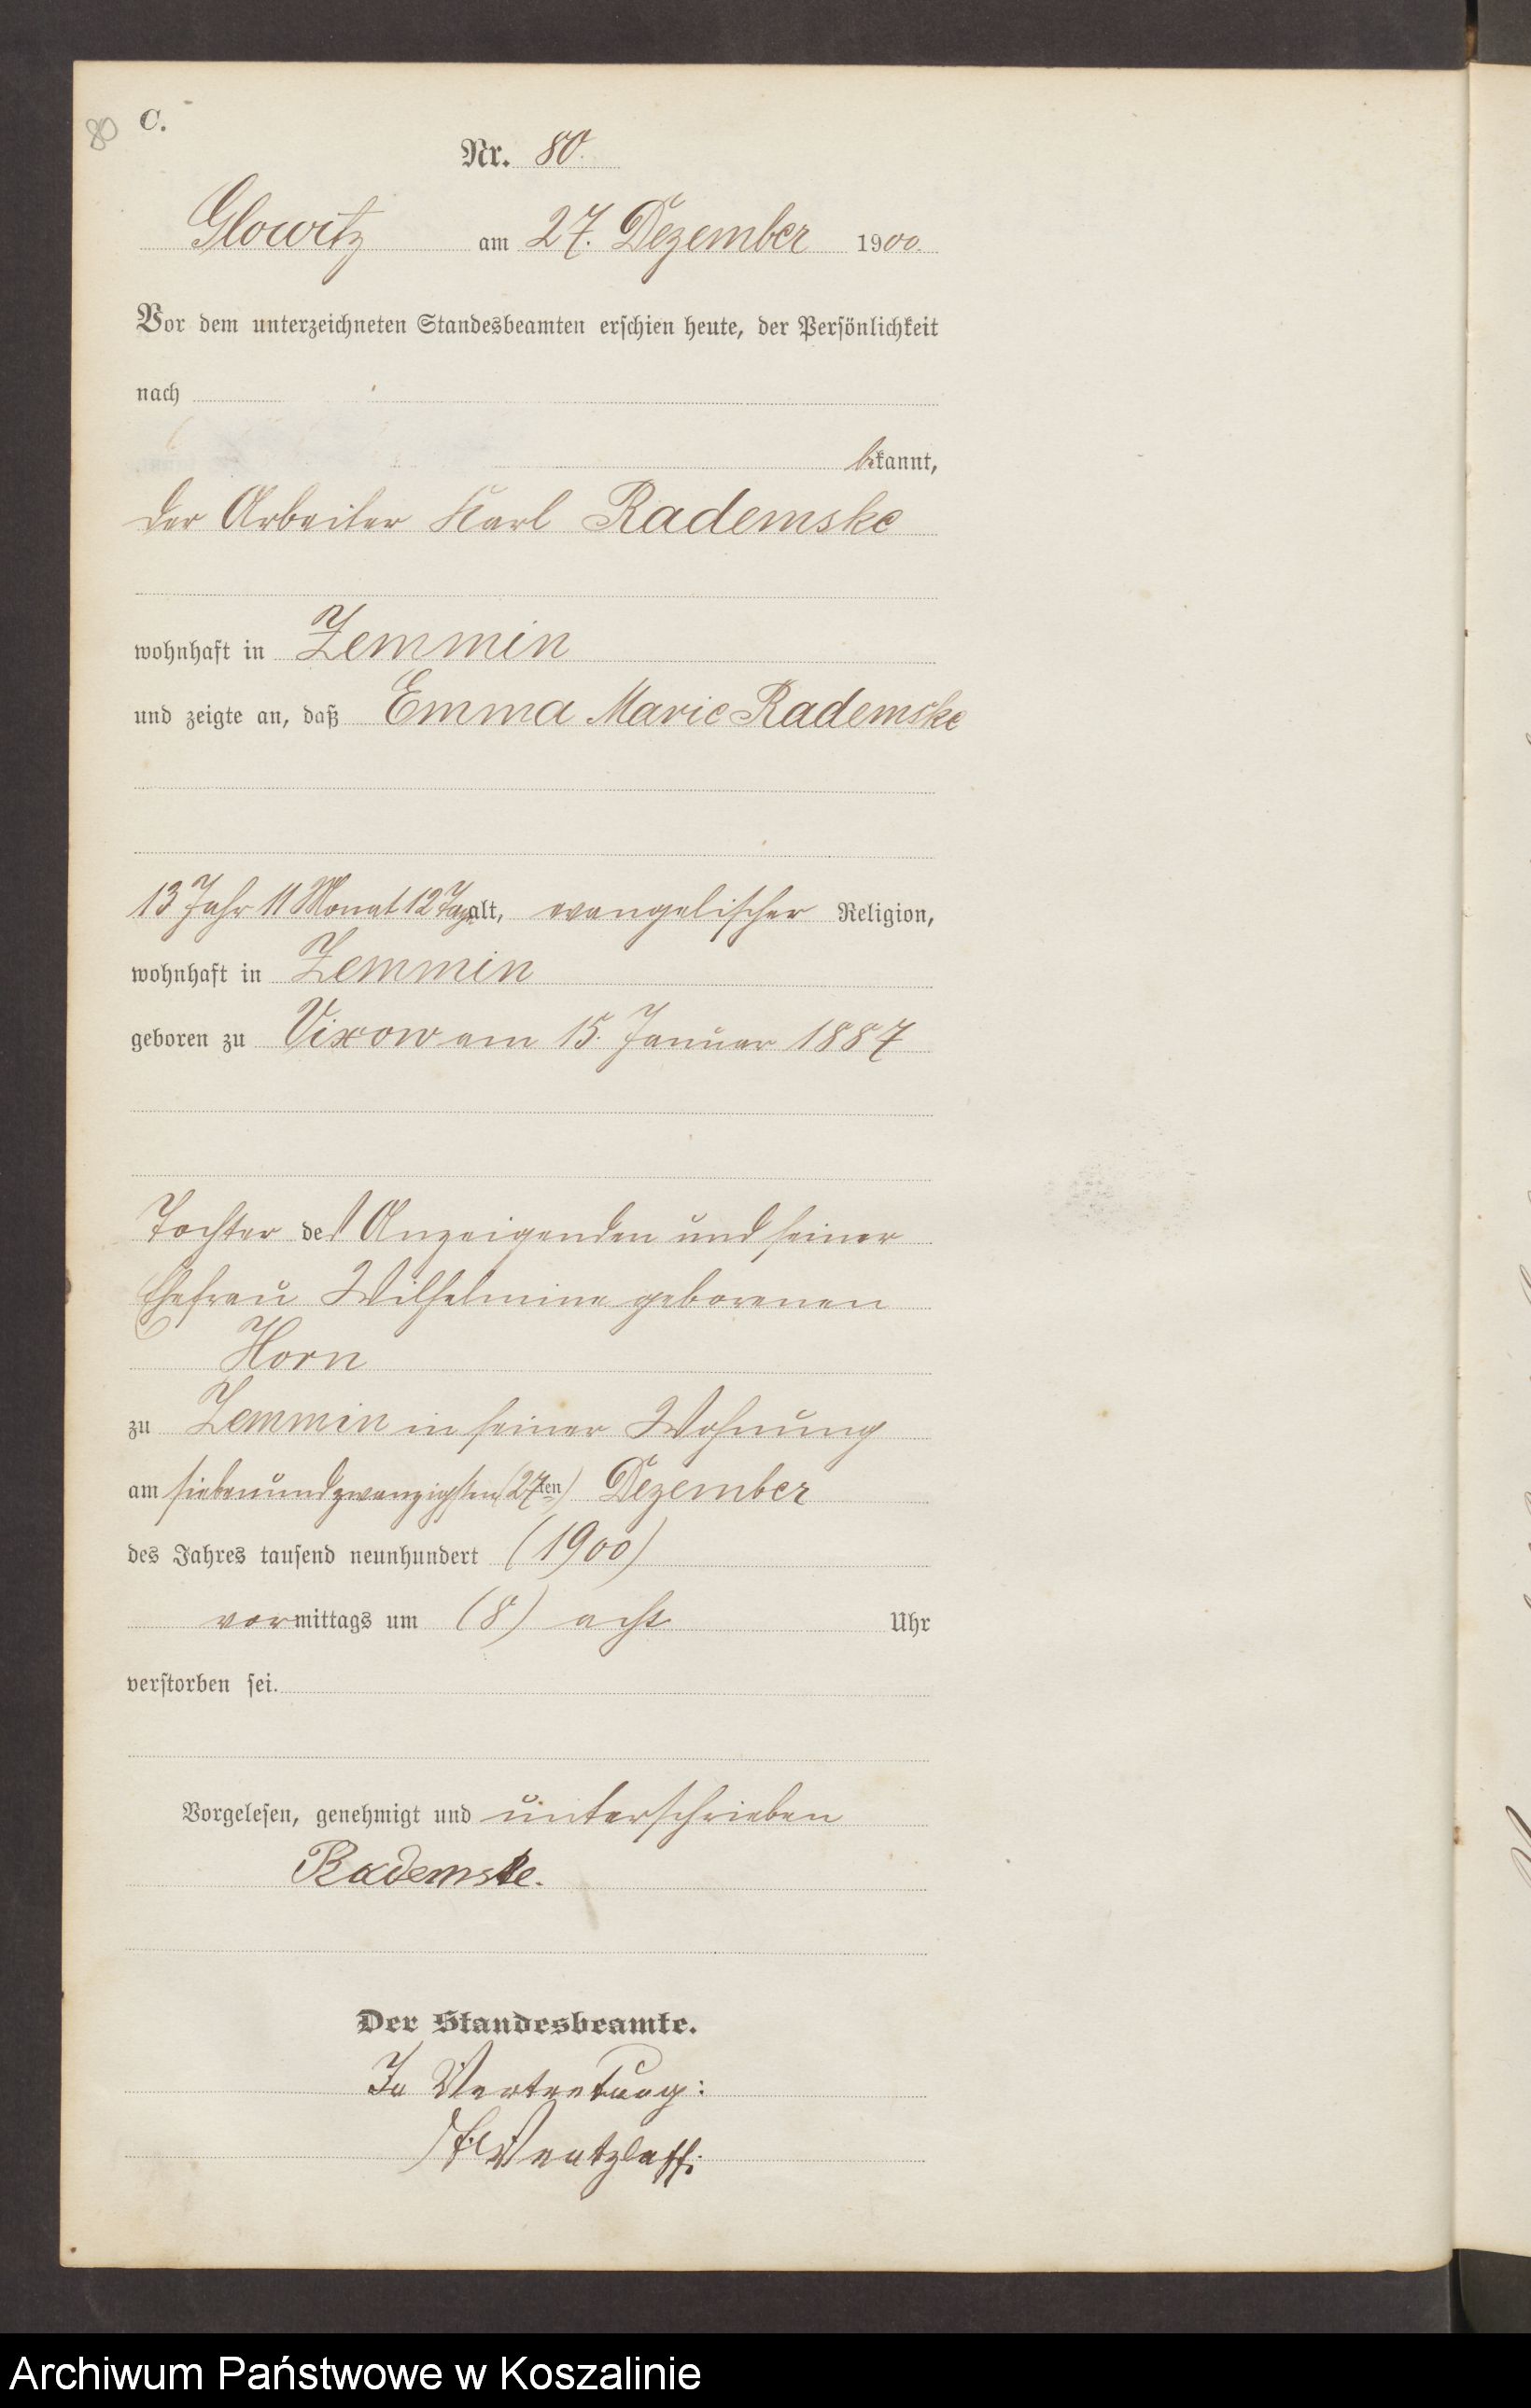 80 C.
Nr. 80.
Glowitz am 27. Dezember 1900.
Vor dem unterzeichneten Standesbeamten erschien heute, der Persönlichkeit
nach
bekannt,
der Arbeiter Karl Rademske
wohnhaft in Zemmin
und zeigte an, daß Emma Marie Rademske
13 Jahr 11 Monat 12 Tage alt, evangelischer Religion,
wohnhaft in Zemmin
geboren zu Vixow am 15. Januar 1887
Tochter des Anzeigenden und seiner
Ehefrau Wilhelmine geborenen
Horn
zu Zemmin in seiner Wohnung
am siebenundzwanzigsten (27ten) Dezember
des Jahres tausend neunhundert (1900)
vormittags um (8) acht Uhr
verstorben sei.
Vorgelesen, genehmigt und unterschrieben
Rademske.
Der Standesbeamte.
In Vertretung:
Wentzlaff.
Archiwum Państwowe w Koszalinie